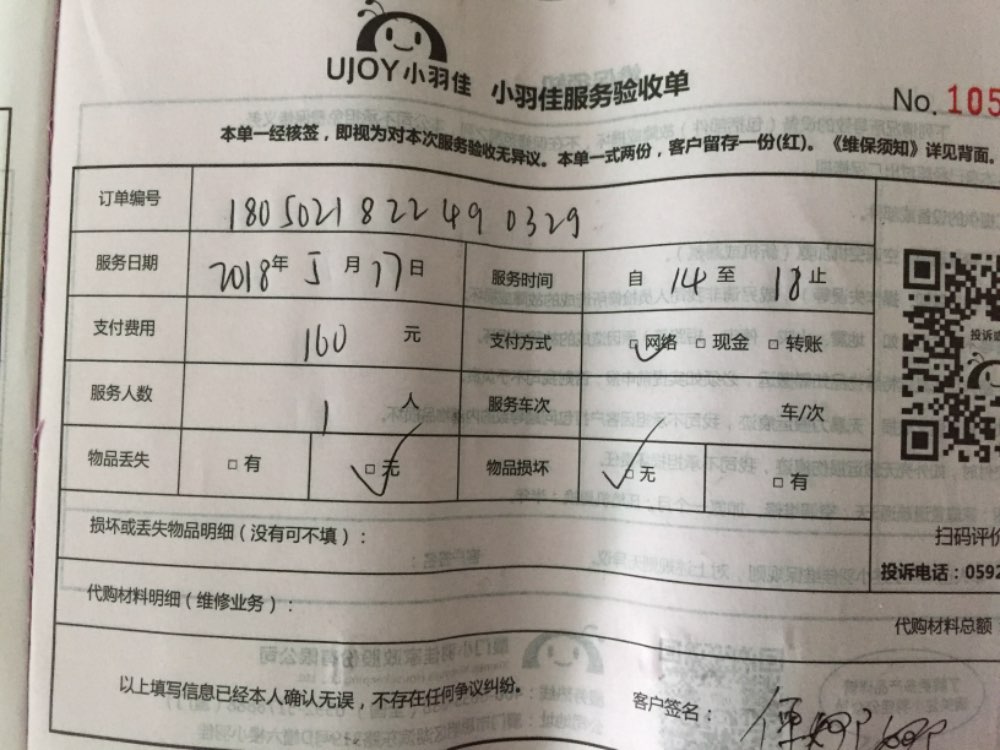 UJOY小羽佳 小羽佳服务验收单
No. 105
本单一经核签，即视为对本次服务验收无异议。本单一式两份，客户留存一份(红)。《维保须知》详见背面。
订单编号 180502182249 0329
服务日期 2018年 5 月 17 日 服务时间 自 14 至 18 止
支付费用 160 元 支付方式 □网络 □现金 □转账
服务人数 1 人 服务车次 车/次
物品丢失 □有 □无 物品损坏 □无 □有
损坏或丢失物品明细（没有可不填）：
代购材料明细（维修业务）：
投诉
扫码评价
投诉电话：0592
代购材料总额
以上填写信息已经本人确认无误，不存在任何争议纠纷。
客户签名：